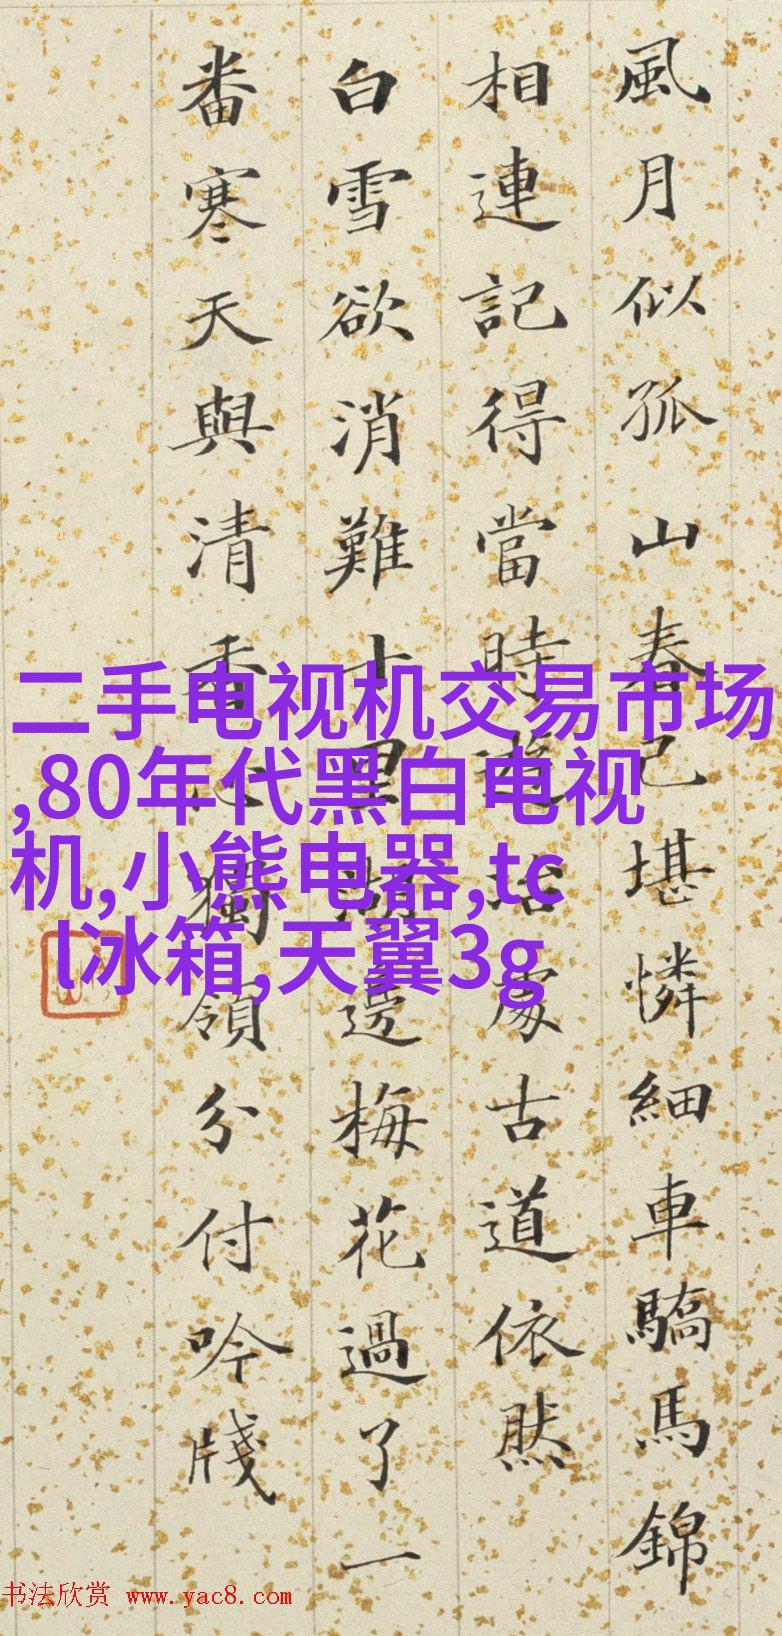 風月似孤山春已堪憐細車驕馬錦
相連記得當時遊冶處古道依然
白雪欲消難十里湖邊梅花過了一
番寒天與清香心獨領分付吟牋
二手电视机交易市场
,80年代黑白电视
机,小熊电器,tc
l冰箱,天翼3g
书法欣赏 www.yac8.com